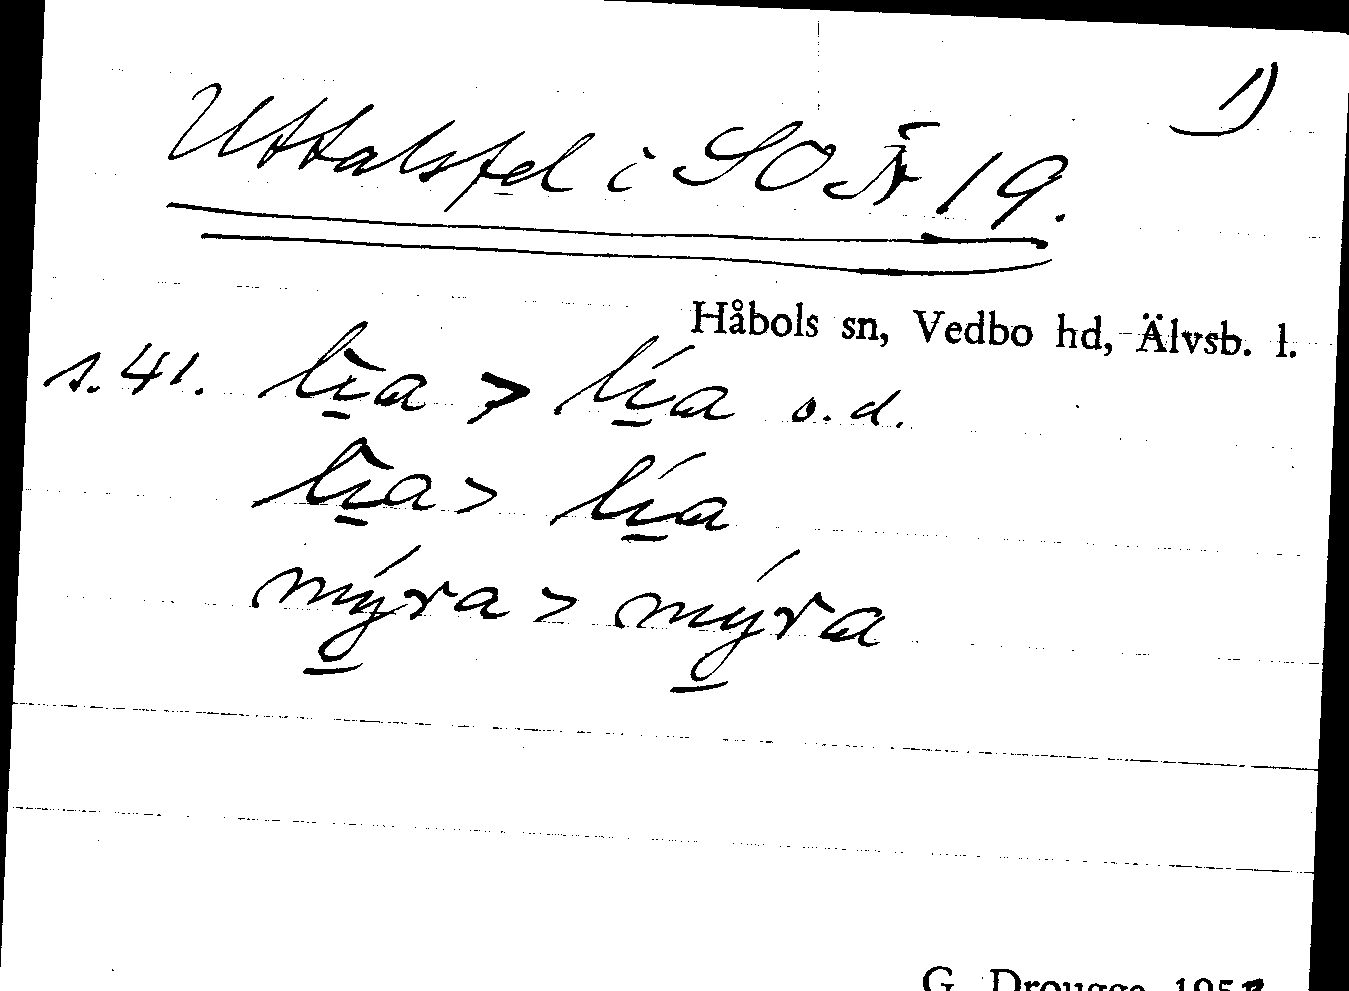 1)
Uttalsfel i SOÄ 19.
Håbols sn, Vedbo hd, Älvsb. l.
s. 41. lī̠a > lí̠a o.d.
lī̠a > lí̠a
mý̠ra > mý̠ra
G. Drougge 195